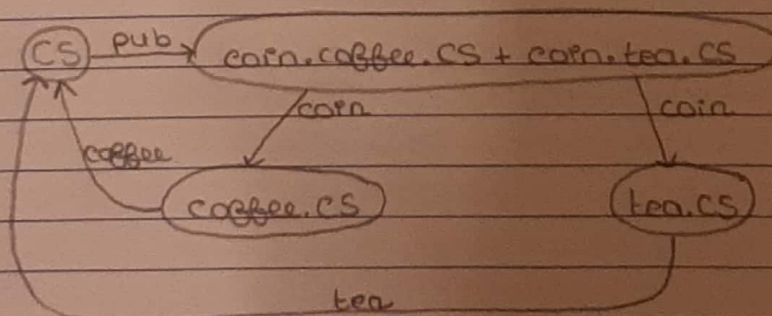 CS pub coin.coffee.CS + coin.tea.CS
coin coin
coffee
coffee.CS tea.CS
tea